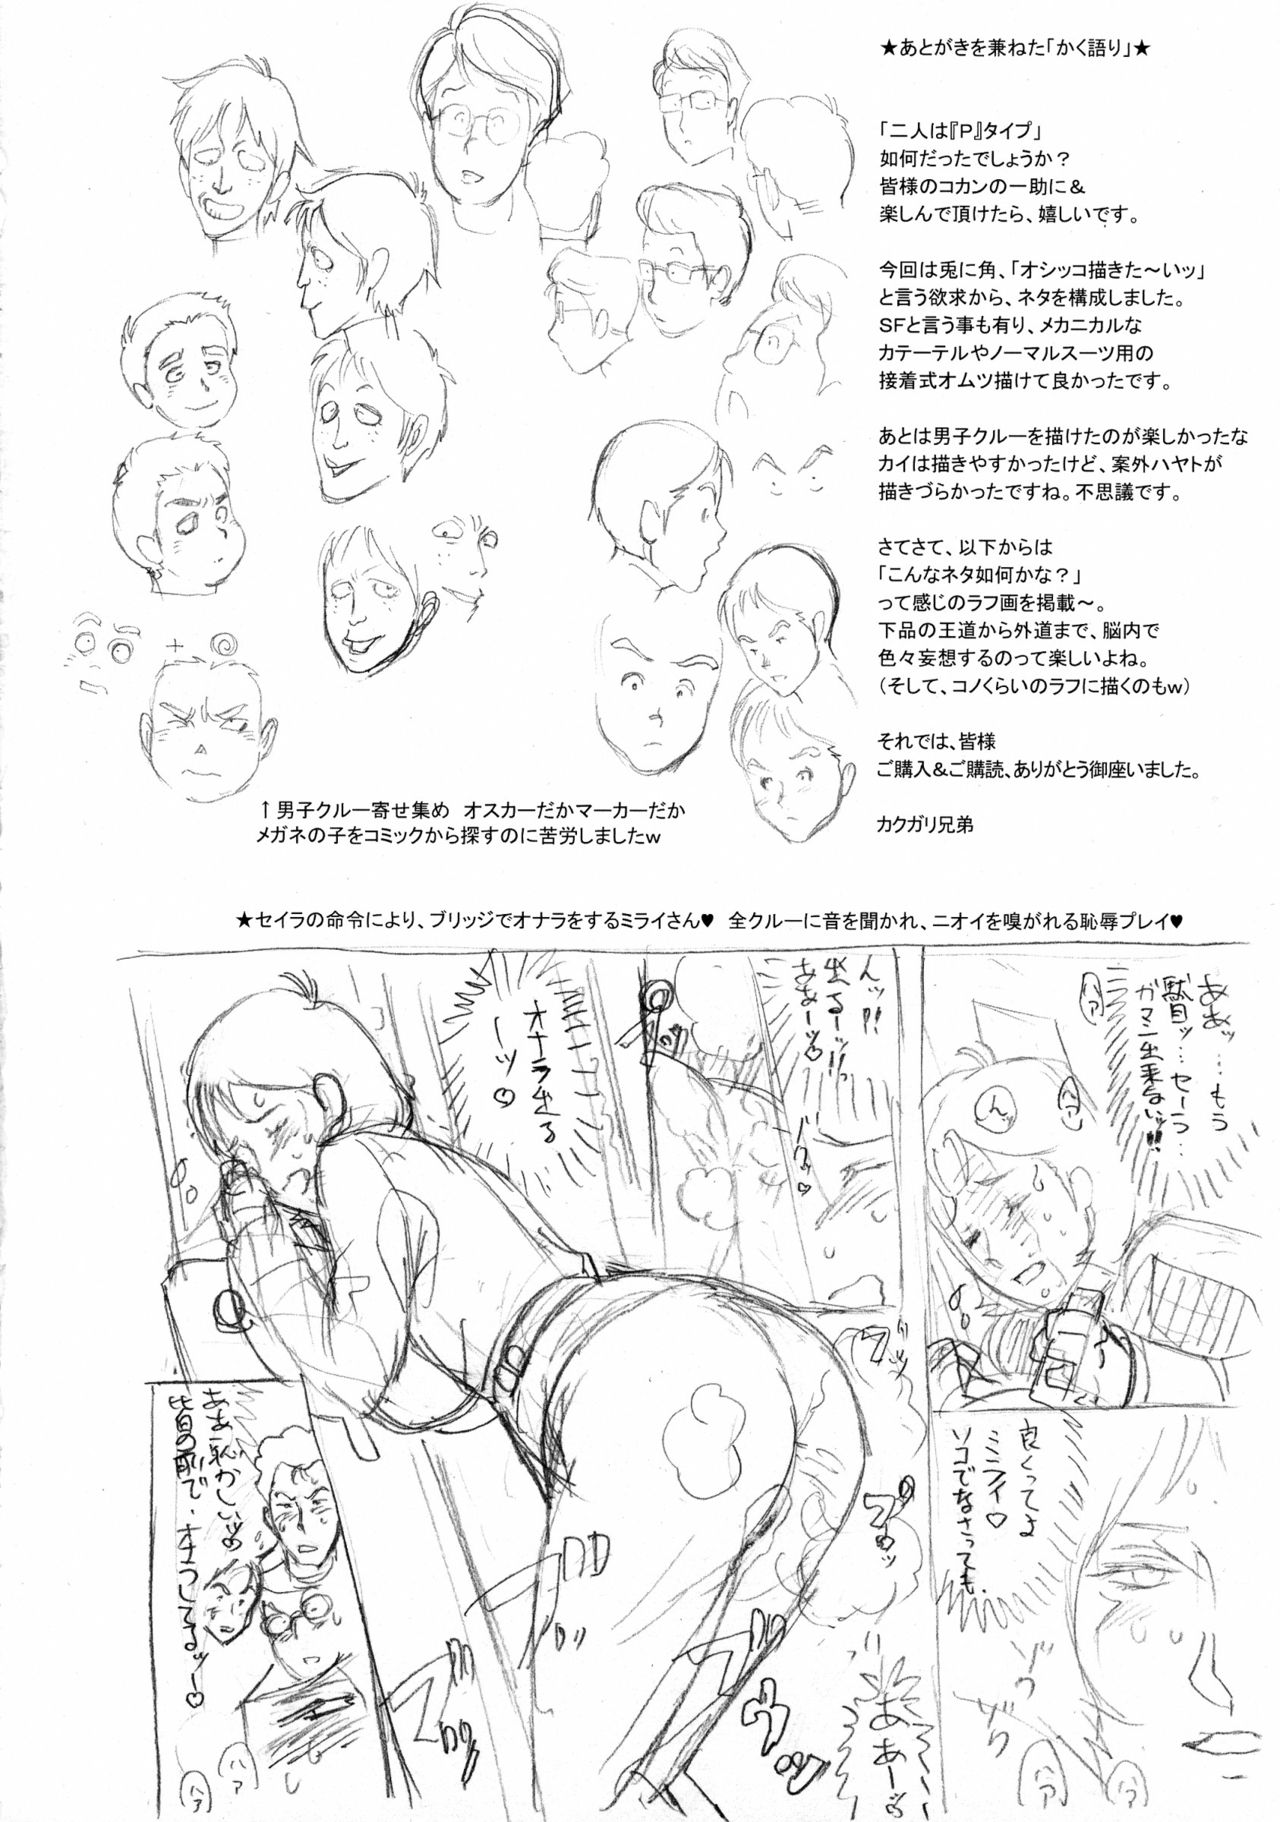 ★あとがきを兼ねた「かく語り」★
「二人は『P』タイプ」
如何だったでしょうか？
皆様のコカンの一助に＆
楽しんで頂けたら、嬉しいです。
今回は兎に角、「オシッコ描きた～いッ」
と言う欲求から、ネタを構成しました。
ＳＦと言う事も有り、メカニカルな
カテーテルやノーマルスーツ用の
接着式オムツ描けて良かったです。
あとは男子クルーを描けたのが楽しかったな
カイは描きやすかったけど、案外ハヤトが
描きづらかったですね。不思議です。
さてさて、以下からは
「こんなネタ如何かな？」
って感じのラフ画を掲載～。
下品の王道から外道まで、脳内で
色々妄想するのって楽しいよね。
（そして、コノくらいのラフに描くのもｗ）
それでは、皆様
ご購入＆ご購読、ありがとう御座いました。
カクガリ兄弟
↑男子クルー寄せ集め　オスカーだかマーカーだか
メガネの子をコミックから探すのに苦労しましたｗ
★セイラの命令により、ブリッジでオナラをするミライさん♥　全クルーに音を聞かれ、ニオイを嗅がれる恥辱プレイ♥
ああッ…もう
駄目ッ…セーラ…
ガマン出来ないッ!!
ハァ
んッ
ハァ
良くってよ
ミライ♡
ソコでなさっても
ゾク
ゾク
ハァ
ハァ
んッ!!
出るーッ!!
ああーッ♡
オナラ出る
ーッ♡
ブッ
ああーッ♡
ああ恥かしいッ
皆の前で
ハァ
ハァ